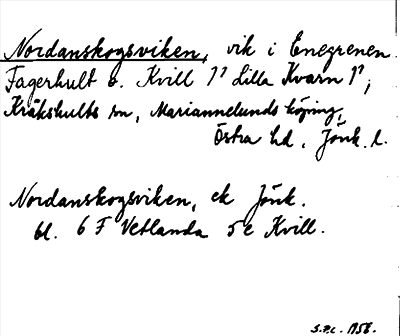 Nordanskogsviken, vik i Enegrenen
Fagerhult o. Kvill 1¹ Lilla Kvarn 1¹,
Kråkshults sn, Mariannelunds köping,
Östra hd, Jönk. l.
Nordanskogsviken, ek Jönk.
bl. 6 F Vetlanda 5 e Kvill.
1958.